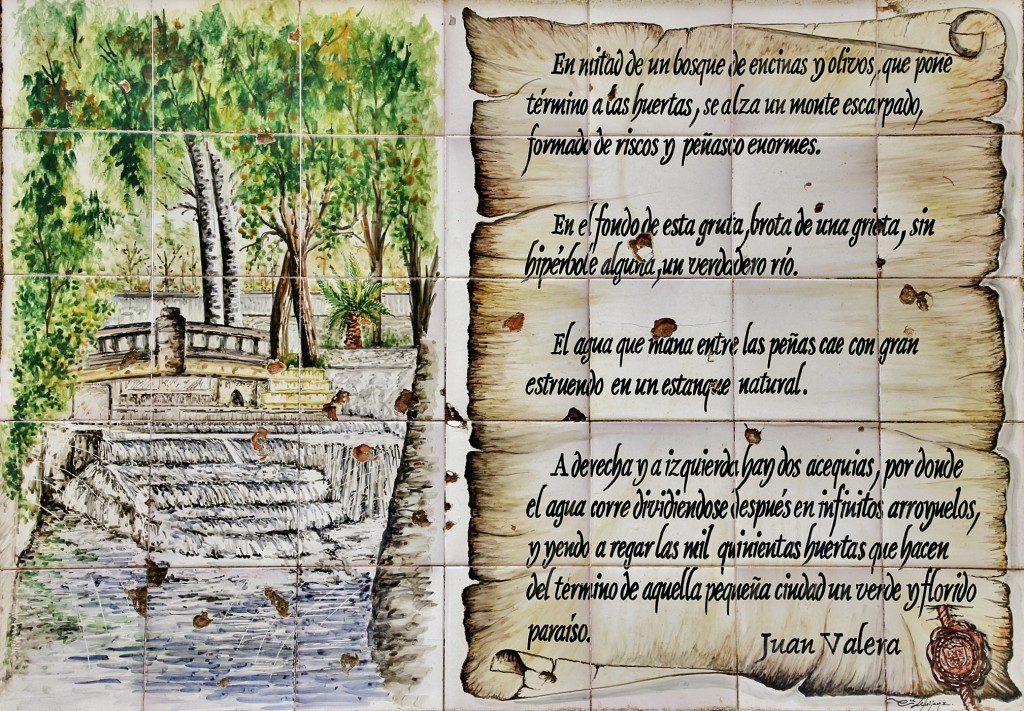 En mitad de un bosque de encinas y olivos, que pone
término a las huertas, se alza un monte escarpado,
formado de riscos y peñasco enormes.
En el fondo de esta gruta, brota de una grieta, sin
hipérbole alguna, un verdadero río.
El agua que mana entre las peñas cae con gran
estruendo en un estanque natural.
A derecha y a izquierda hay dos acequias, por donde
el agua corre dividiendose después en infinitos arroyuelos,
y yendo a regar las mil quinientas huertas que hacen
del término de aquella pequeña ciudad un verde y florido
paraíso.
Juan Valera